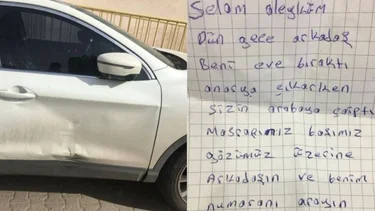 Selam aleyküm
Dün gece arkadaş
Beni eve bıraktı
aracıya çıkarken
sizin arabaya çarptı
Masrafımız başımız
gözümüz üzerine
Arkadaşın ve benim
numaranı arayın